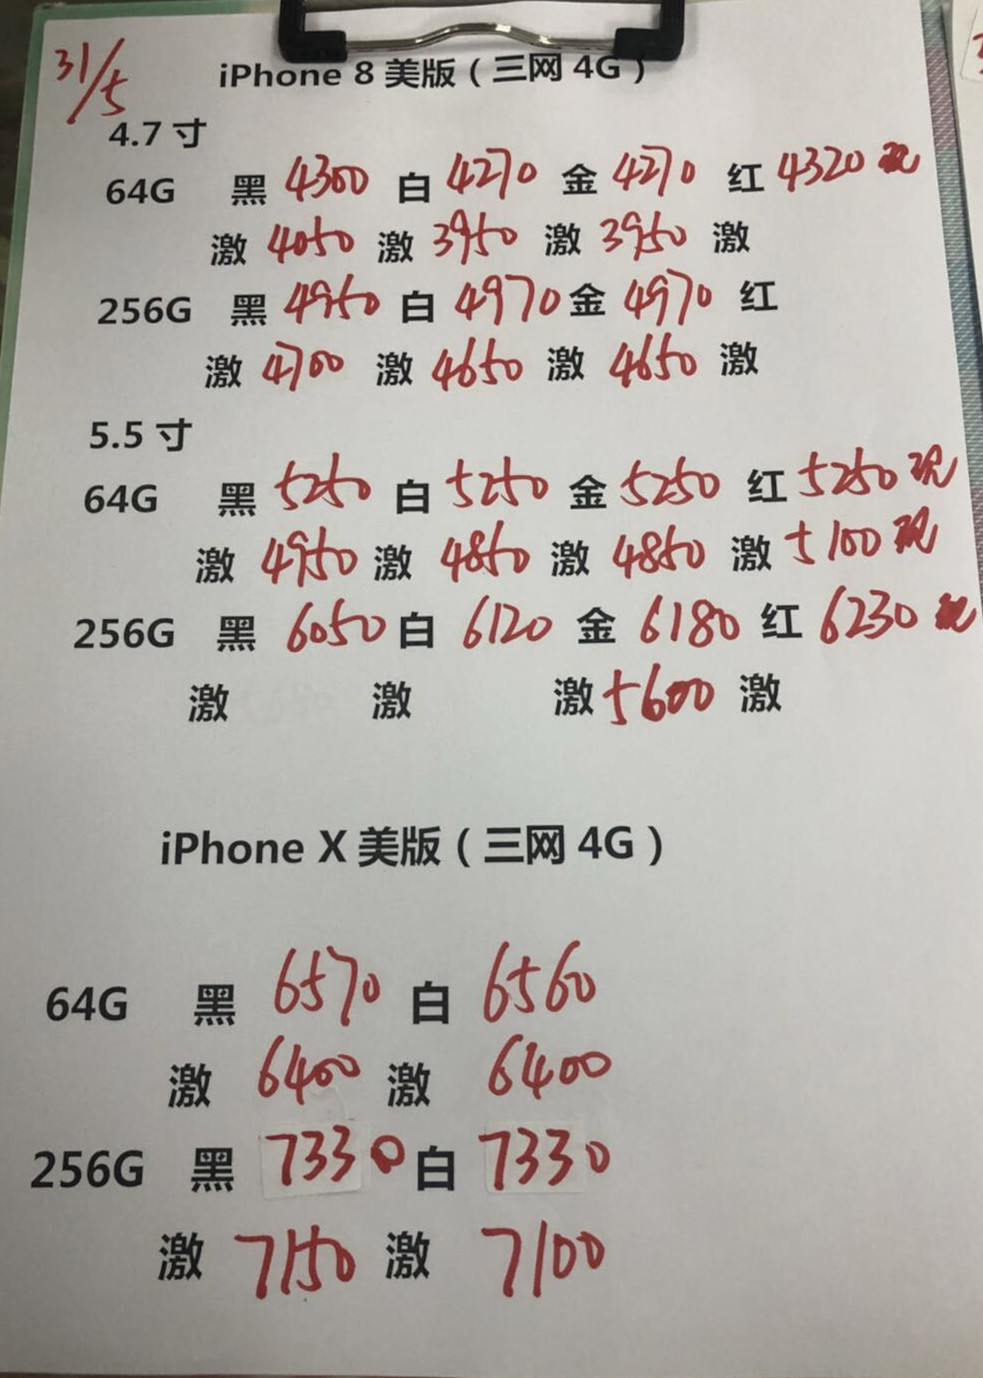 31/5
iPhone 8 美版（三网 4G）
4.7 寸
64G 黑 4300 白 4270 金 4270 红 4320 现
激 4050 激 3950 激 3950 激
256G 黑 4950 白 4970 金 4970 红
激 4700 激 4650 激 4650 激
5.5 寸
64G 黑 5250 白 5250 金 5250 红 5250 现
激 4950 激 4850 激 4850 激 5100 现
256G 黑 6050 白 6120 金 6180 红 6230 现
激 激 激 5600 激
iPhone X 美版（三网 4G）
64G 黑 6570 白 6560
激 6400 激 6400
256G 黑 7330 白 7330
激 7150 激 7100